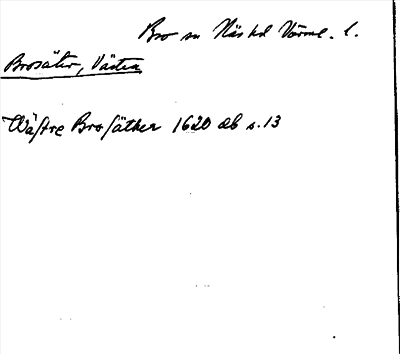 Bro sn Näs hd Värml. l.
Brosäter, Västra
Wästre Brosäther 1620 äb s. 13